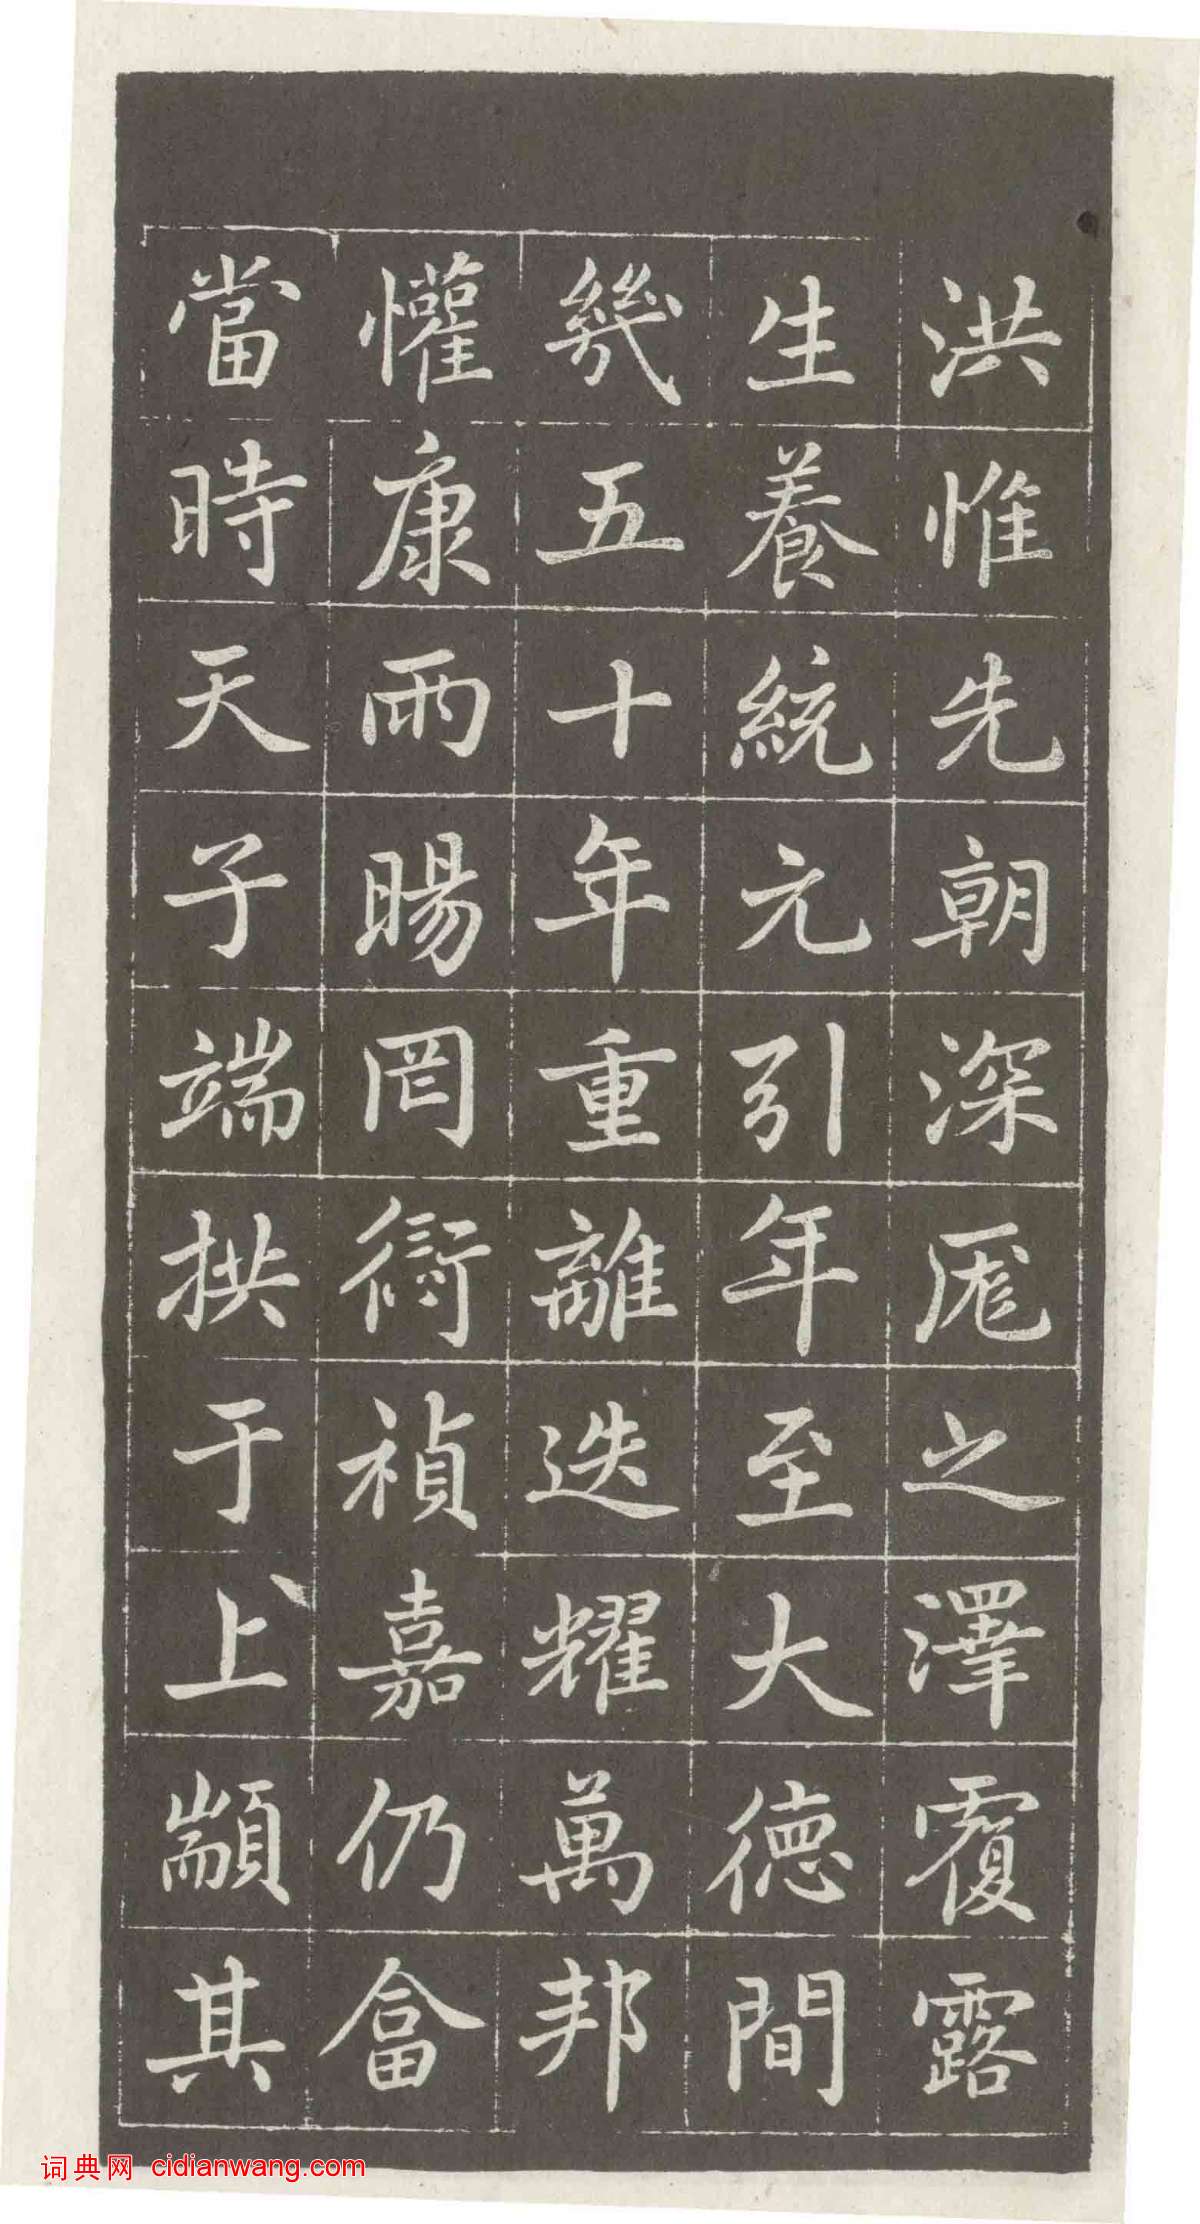 洪惟先朝深厖之澤覆露
生養統元引年至大德間
幾五十年重離迭耀萬邦
懽康雨暘罔愆禎嘉仍畣
當時天子端拱于上顓其
词典网 cidianwang.com